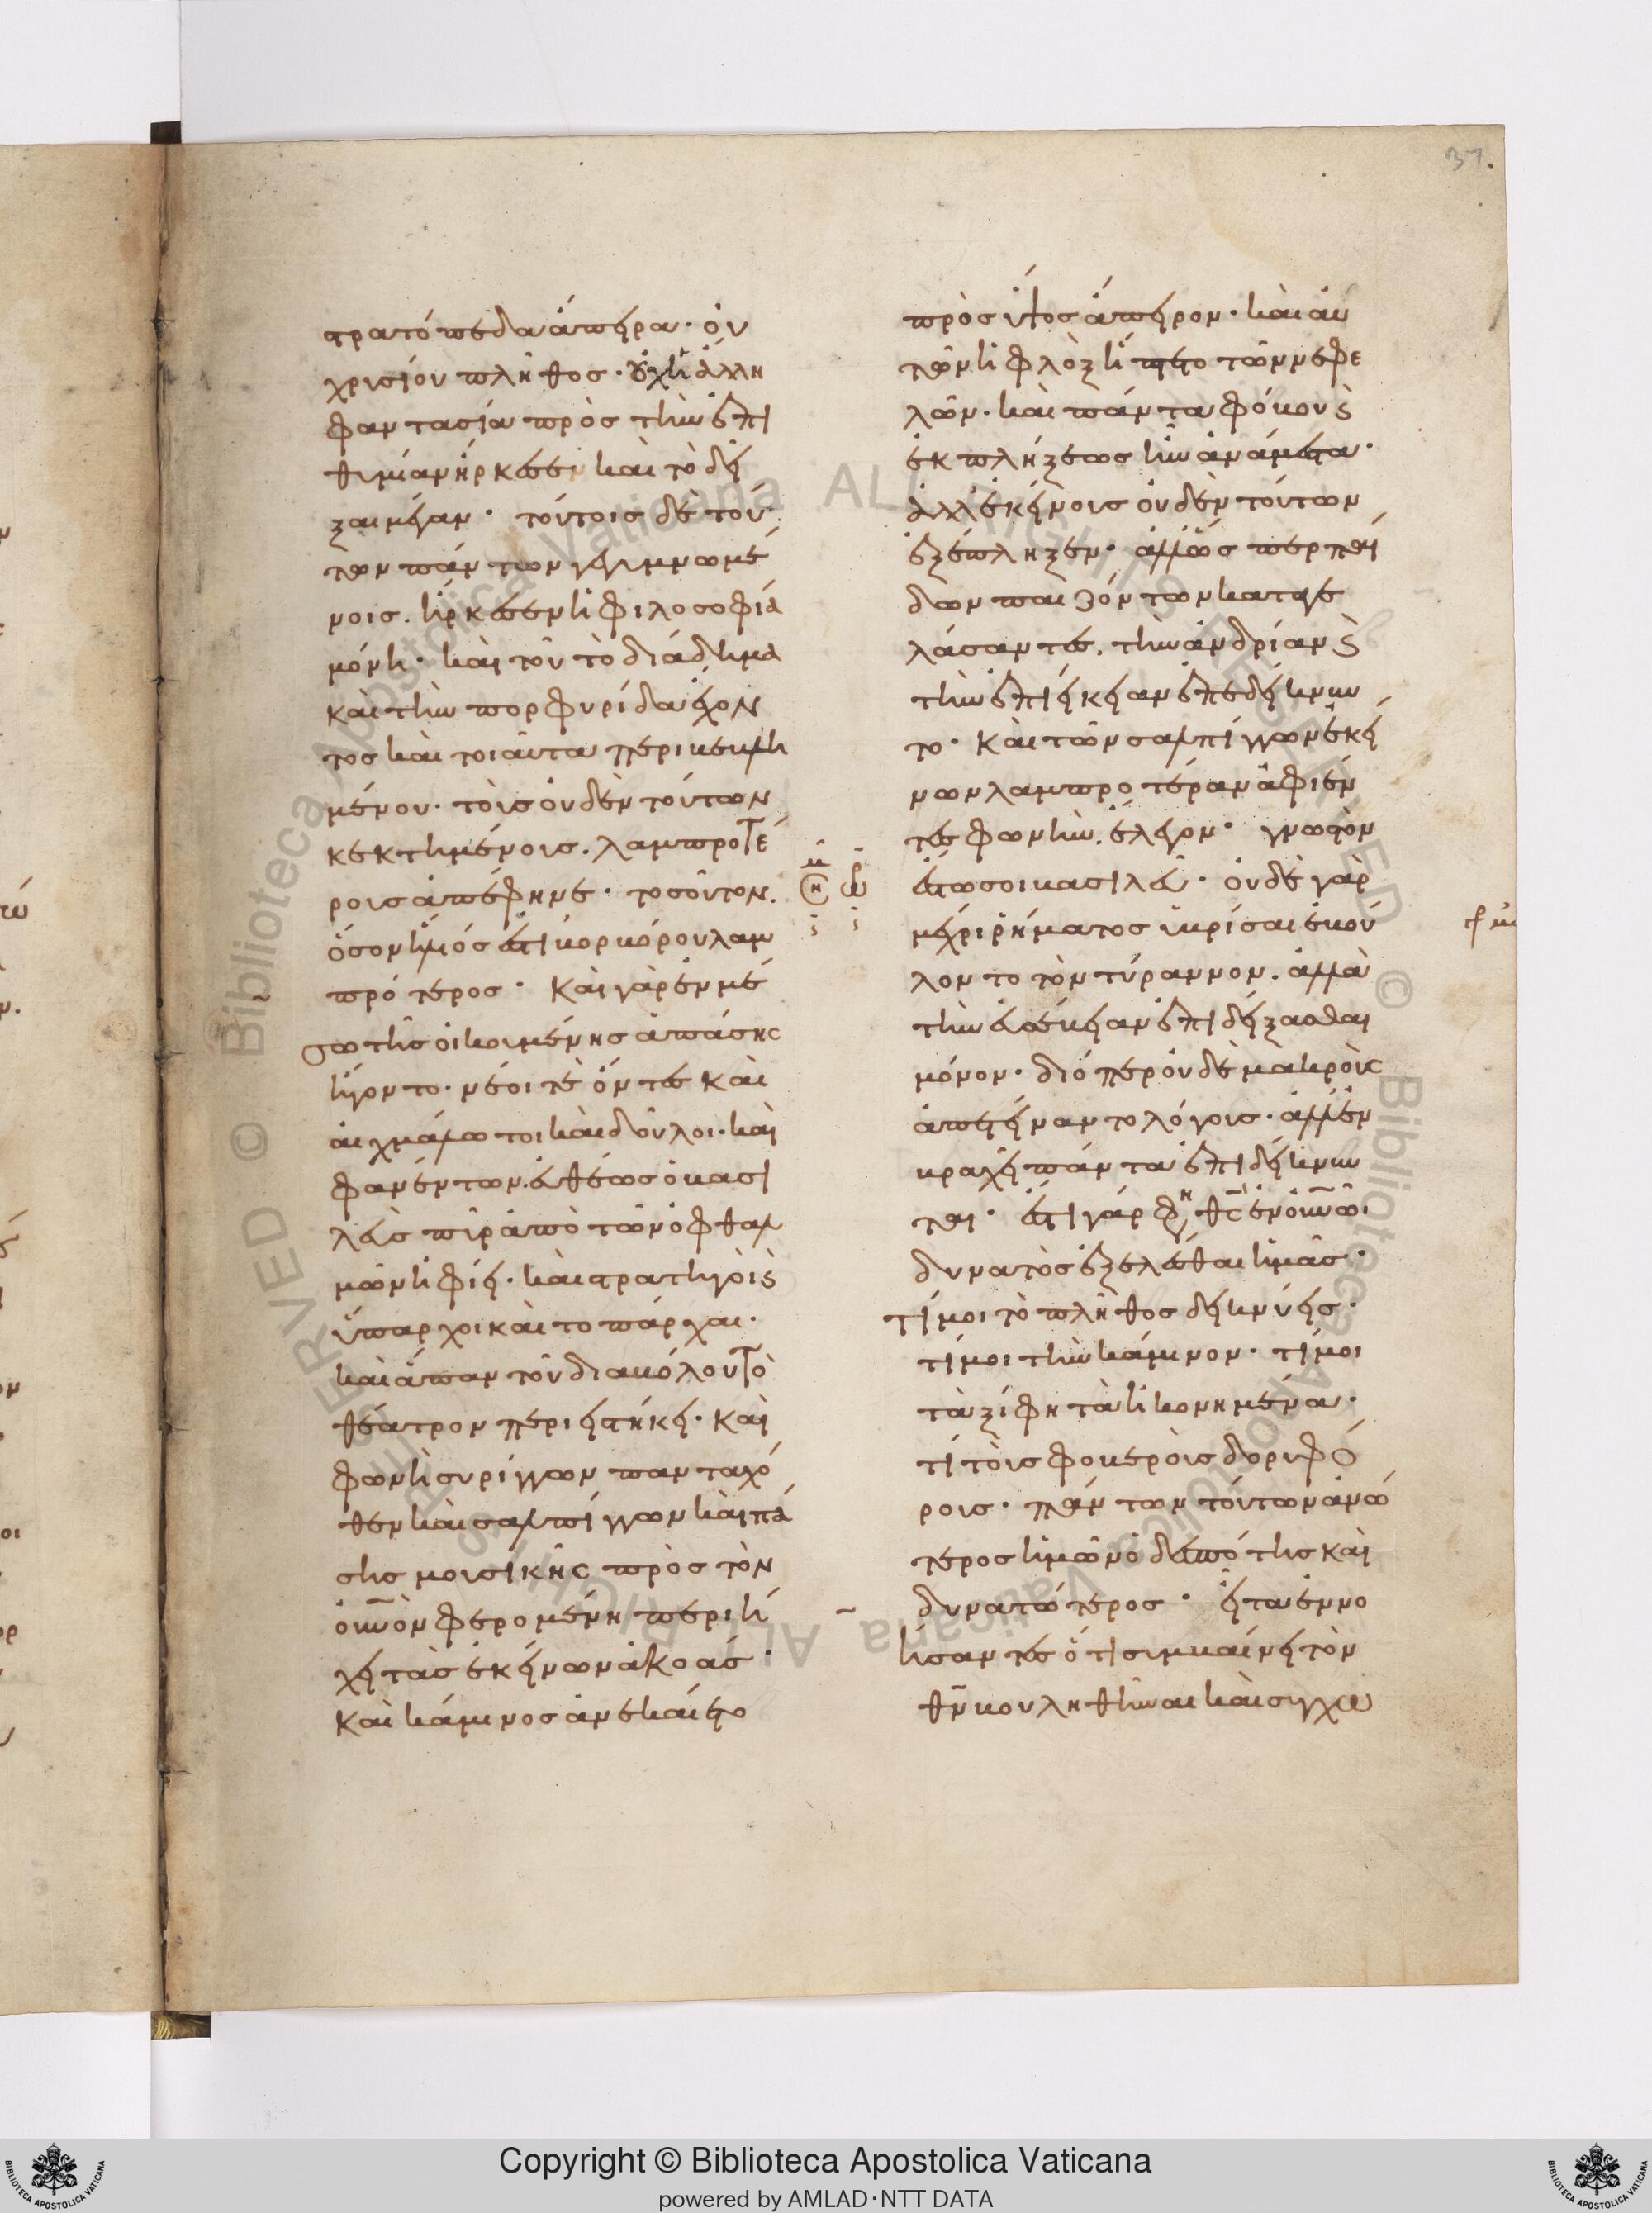 37.
στρατόπεδα ἄπειρα· οὐ
χρυσίου πλῆθος· οὐχ ἡ ἄλλη
φαντασία πρὸς τὴν ἐπι
θυμίαν ἤρκεσε καὶ τὸ δεῖ
ξαι μέγαν· τούτοις δὲ τού
των πάντων γεγυμνωμέ
νοις. ἤρκεσεν ἡ φιλοσοφία
μόνη· καὶ τοῦ τὸ διάδημα
καὶ τὴν πορφυρίδα ἔχον
τος καὶ τοιαῦτα περιβεβλη
μένου· τοὺς οὐδὲν τούτων
κεκτημένους. λαμπροτέ
ρους ἀπέφηνε· τοσοῦτον.
ὅσον ἥλιός ἐστι βορβόρου λαμ
πρότερος· Καὶ γὰρ ἐν μέ
σω τῆς οἰκουμένης ἁπάσης
ἤγοντο· νέοι τὲ ὄντες καὶ
αἰχμάλωτοι καὶ δοῦλοι· καὶ
φανέντων. εὐθέως ὁ βασι
λεὺς πῦρ ἀπὸ τῶν ὀφθαλ
μῶν ἠφίει· καὶ στρατηγοὶ καὶ
ὕπαρχοι καὶ τοπάρχαι·
καὶ ἅπαν τοῦ διαβόλου τὸ
θέατρον περιειστήκει· Καὶ
φωνὴ συρίγγων πανταχό
θεν καὶ σαλπίγγων καὶ πά
σης μουσικῆς πρὸς τὸν
οὐνὸν φερομένη περιή
χει τὰς ἐκείνων ἀκοάς·
Καὶ κάμινος ἀνεκαίετο
πρὸς ὕψος ἄπειρον· καὶ αὐ
τῶν ἡ φλὸξ ἥπτετο τῶν νεφε
λῶν· καὶ πάντα φόβου καὶ
ἐκπλήξεως ἦν ἀνάμεστα·
ἀλλ' ἐκείνους οὐδὲν τούτων
ἐξέπληξεν· ἀλλ' ὥσπερ παί
δων παιζόντων καταγε
λάσαντες. τὴν ἀνδρίαν καὶ
τὴν ἐπιείκειαν ἐπεδείκνυν
το· Καὶ τῶν σαλπίγγων ἐκεί
νων λαμπροτέραν ἀφιέν
τες φωνὴν. ἔλεγον· γνωστὸν
ἔστω σοι βασιλεῦ· οὐδὲ γὰρ
μέχρι ῥήματος ὑβρίσαι ἐβού
λοντο τὸν τύραννον. ἀλλὰ
τὴν εὐσέβειαν ἐπιδείξασθαι
μόνον· διόπερ οὐδὲ μακροὺς
ἀπετείναντο λόγους· ἀλλ' ἐν
βραχεῖ πάντα ἐπιδείκνυν
ται· ἔστι γάρ φη θς ἐν οὐνῶ
δυνατὸς ἐξελέσθαι ἡμᾶς·
τί μοι τὸ πλῆθος δεικνύεις·
τί μοι τὴν κάμινον· τί μοι
τὰ ξίφη τὰ ἠκονημένα·
τί τοὺς φοβεροὺς δορυφό
ρους· πάντων τούτων ἀνώ
τερος ἡμῶν ὁ δεσπότης καὶ
δυνατώτερος· εἶτα ἐννο
ήσαντες ὅτι συμβαίνει τὸν
θν βουληθῆναι καὶ συγχω